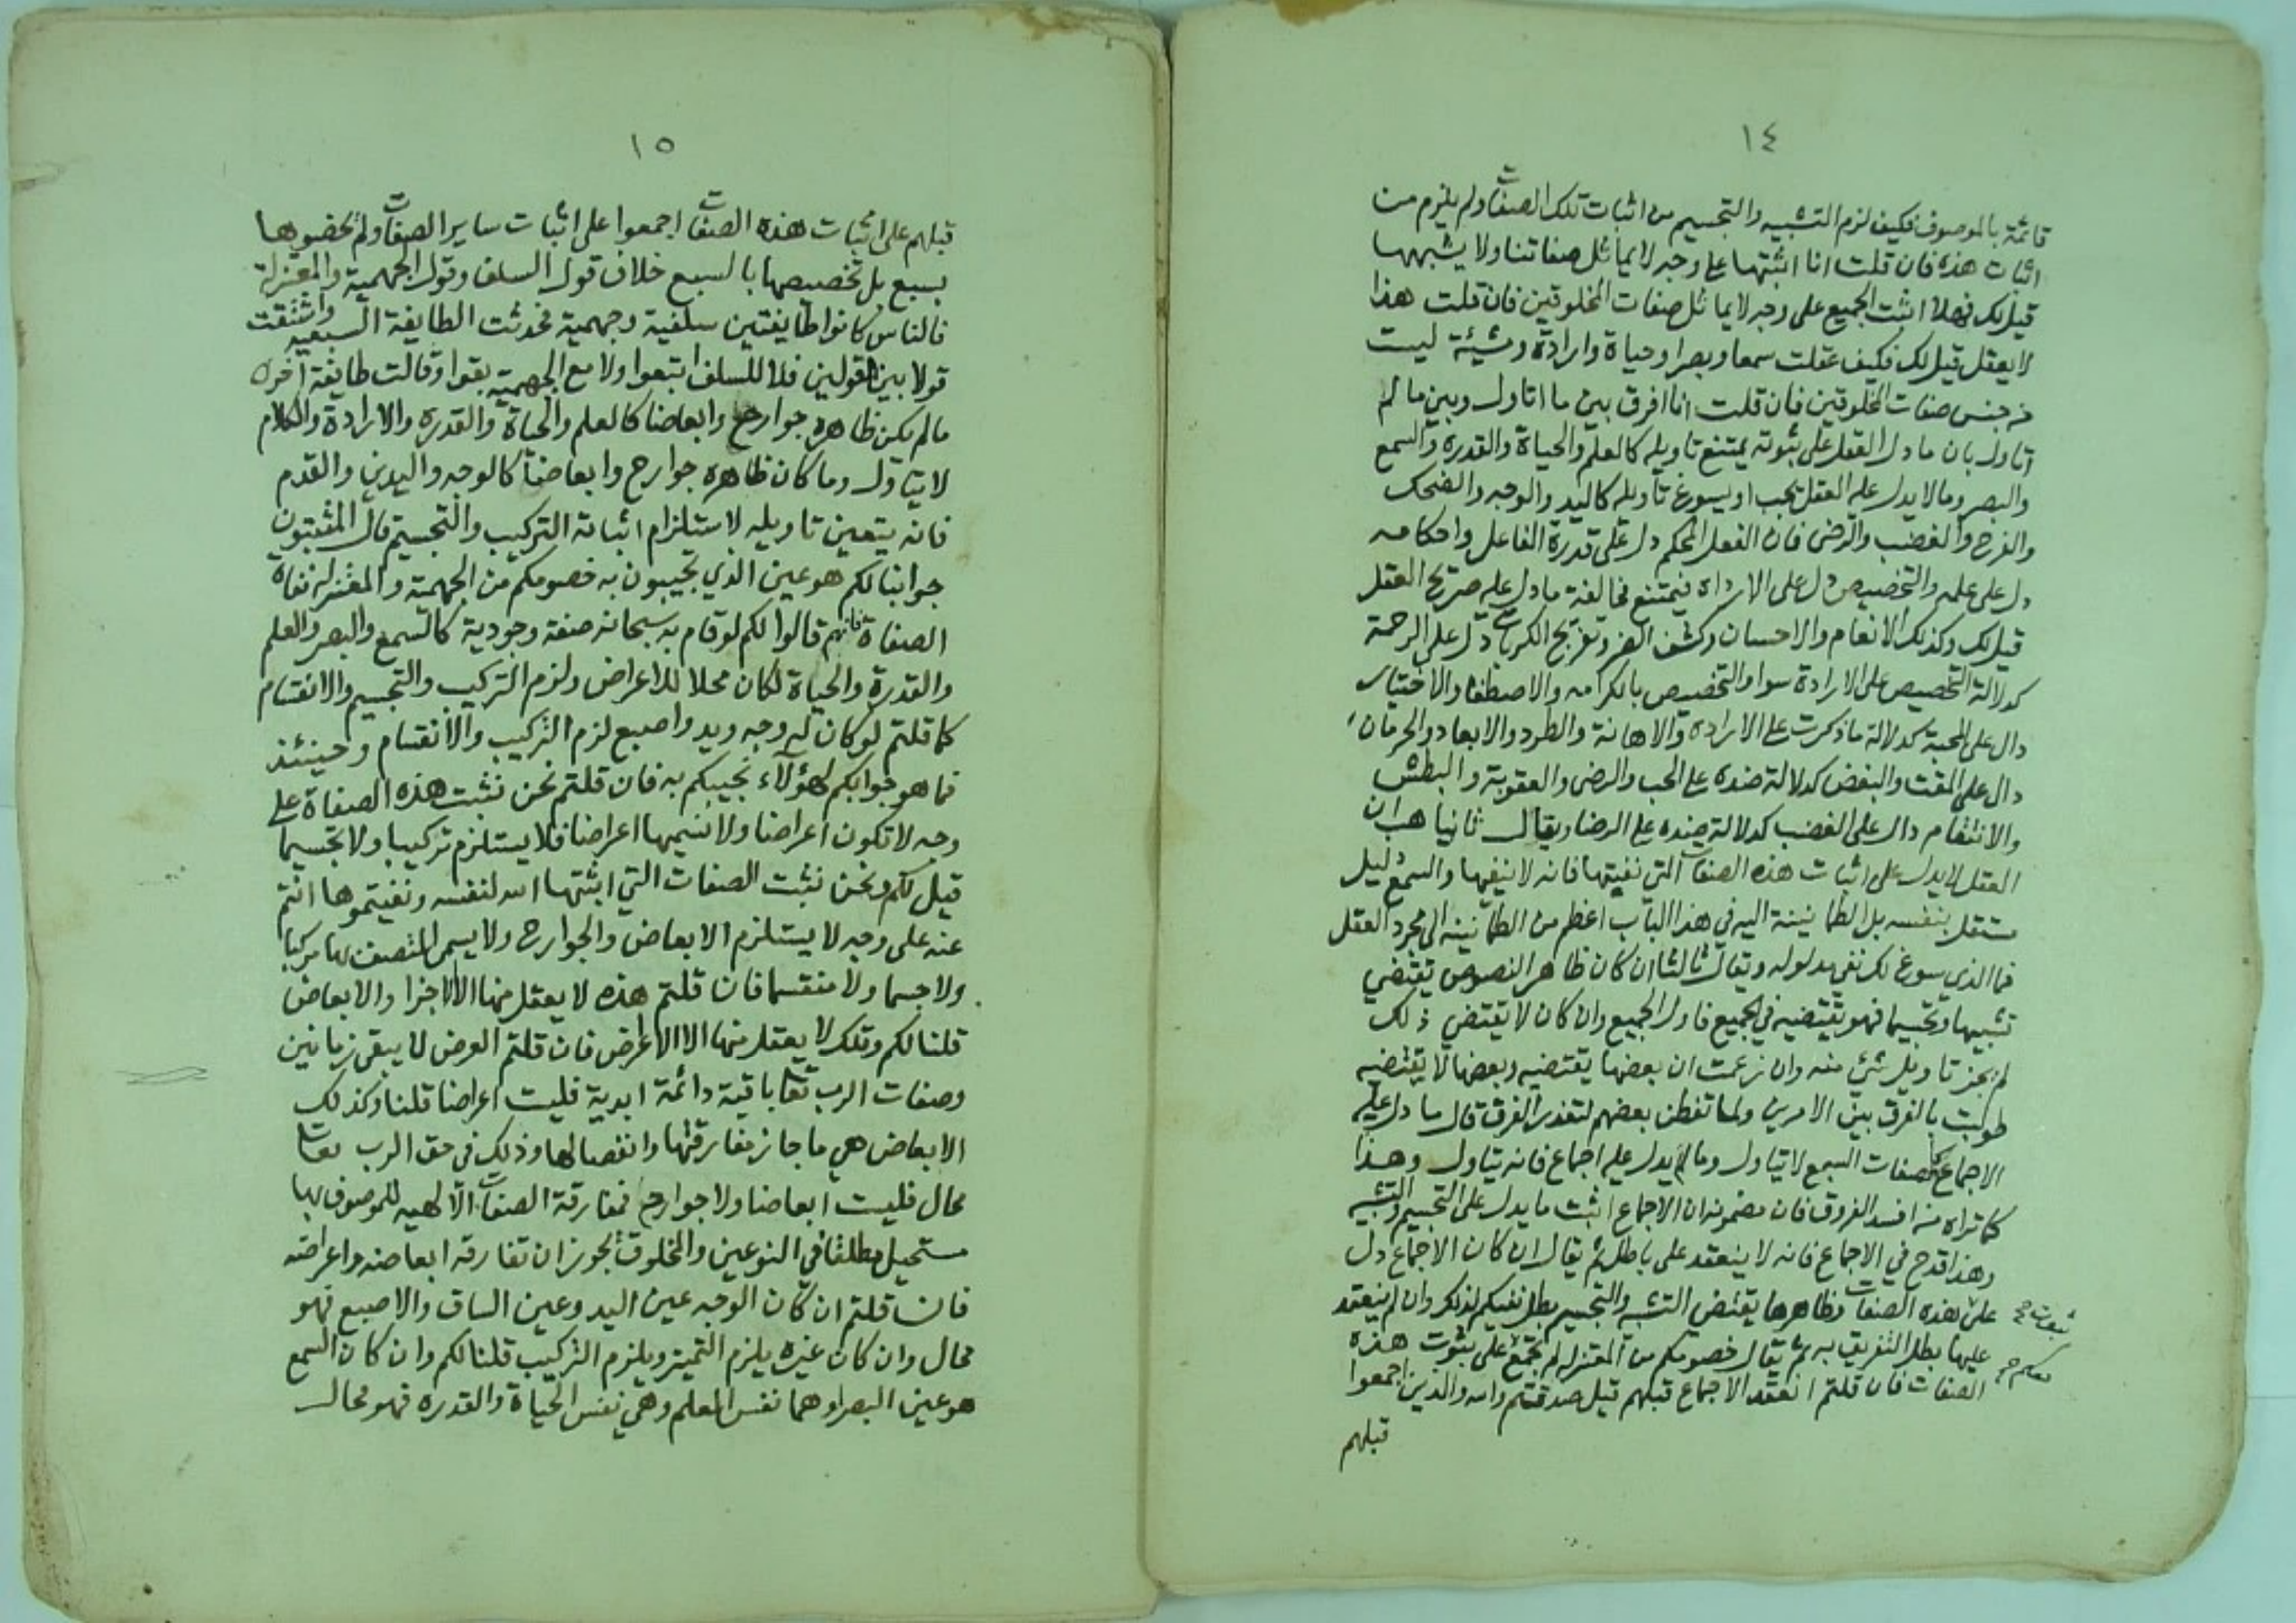 ١٤
قائمة بالموصوف فكيف لزم التشبيه والتجسيم من اثبات تلك الصفات ولم يلزم من
اثبات هذه فان قلت انا اثبتها على وجه لا يماثل صفاتنا ولا يشبهها
قيل لك فهلا اثبت الجميع على وجه لا يماثل صفات المخلوقين فان قلت هذا
لا يعقل قيل لك فكيف عقلت سمعا وبصرا وحياة وارادة ومشيئة ليست
من جنس صفات المخلوقين فان قلت انا افرق بين ما اتاول وبين ما لم
اتاول بان ما دل العقل على ثبوته يمتنع تاويله كالعلم والحياة والقدره والسمع
والبصر وما لا يدل عليه العقل يجب او يسوغ تاويله كاليد والوجه والضحك
والفرح والغضب والرضى فان الفعل المحكم دل على قدرة الفاعل واحكامه
دل على علمه والتخصيص دل على الاراده فيمتنع مخالفة ما دل عليه صريح العقل
قيل لك وكذلك الانعام والاحسان وكشف الضر وتفريج الكربات دل على الرحمة
كدلالة التخصيص على الارادة سوا والتخصيص بالكرامه والاصطفا والاختيار
دال على المحبة كدلالة ما ذكرت على الاراده والاهانة والطرد والابعاد والحرمان
دال على المقت والبغض كدلالة ضده على الحب والرضى والعقوبة والبطش
والانتقام دال على الغضب كدلالة ضده على الرضا ويقال ثانيا هب ان
العقل لا يدل على اثبات هذه الصفات التي نفيتها فانه لا ينفيها والسمع دليل
مستقل بنفسه بل الطمانينة اليه في هذا الباب اعظم من الطمانينه الى مجرد العقل
فما الذي يسوغ لك نفي مدلوله ويقال ثالثا ان كان ظاهر النصوص يقتضي
تشبيها وتجسيما فهو يقتضيه في الجميع فاول الجميع وان كان لا يقتضي ذلك
لم يجز تاويل شئ منه وان زعمت ان بعضها يقتضيه وبعضها لا يقتضيه
طولبت بالفرق بين الامرين ولما تفطن بعضهم لتعذر الفرق قال ما دل عليه
الاجماع كصفات السبع لا يتاول وما لم يدل عليه اجماع فانه يتاول وهذا
كما تراه من افسد الفروق فان مضمونه ان الاجماع اثبت ما يدل على التجسيم والتشبيه
وهذا قدح في الاجماع فانه لا ينعقد على باطل ثم يقال ان كان الاجماع دل
على هذه الصفات وظاهرها يقتضي التشبيه والتجسيم بطل نفيكم لذلك وان لم ينعقد
عليها بطل التفريق به ثم يقال خصومكم من المعتزله لم تجمع على ثبوت هذه
الصفات فان قلتم انعقد الاجماع قبلهم قيل صدقتم والله والذين اجمعوا
قبلهم
١٥
قبلهم على اثبات هذه الصفات اجمعوا على اثبات ساير الصفات ولم يخصوها
بسبع بل تخصيصها بالسبع خلاف قول السلف وقول الجهمية والمعتزلة
فالناس كانوا طايفتين سلفية وجهمية فحدثت الطايفة السبعيه واشتقت
قولا بين القولين فلا للسلف اتبعوا ولا مع الجهمية بقوا وقالت طايفة اخرى
ما لم يكن ظاهره جوارح وابعاضا كالعلم والحياة والقدره والارادة والكلام
لا يتاول وما كان ظاهره جوارح وابعاضا كالوجه واليدين والقدم
فانه يتعين تاويله لاستلزام اثباته التركيب والتجسيم قال المثبتون
جوابنا لكم هو عين الذي تجيبون به خصومكم من الجهمية والمعتزله نفاة
الصفاة فانهم قالوا لكم لو قام به سبحانه صفة وجودية كالسمع والبصر والعلم
والقدرة والحياة لكان محلا للاعراض ولزم التركيب والتجسيم والانقسام
كما قلتم لو كان له وجه ويد واصبع لزم التركيب والانقسام وحينئذ
فما هو جوابكم لهؤلاء نجيبكم به فان قلتم نحن نثبت هذه الصفاة على
وجه لا تكون اعراضا ولا نسميها اعراضا فلا يستلزم تركيبا ولا تجسيما
قيل لكم ونحن نثبت الصفات التي اثبتها الله لنفسه ونفيتموها انتم
عنه على وجه لا يستلزم الابعاض والجوارح ولا يسمى المتصف بها مركبا
ولا جسما ولا منقسما فان قلتم هذه لا يعقل منها الا الاجزا والابعاض
قلنا لكم وتلك لا يعقل منها الا الاعراض فان قلتم العرض لا يبقى زمانين
وصفات الرب تعا باقية دائمة ابدية فليست اعراضا قلنا وكذلك
الابعاض هي ما جاز مفارقتها وانفصالها وذلك في حق الرب تعا
محال فليست ابعاضا ولا جوارح فمفارقة الصفات الالهيه للموصوف بها
مستحيل مطلقا في النوعين والمخلوق يجوز ان تفارقه ابعاضه واعراضه
فان قلتم ان كان الوجه عين اليد وعين الساق والاصبع فهو
محال وان كان غيره يلزم التميز ويلزم التركيب قلنا لكم وان كان السمع
هو عين البصر وهما نفس العلم وهي نفس الحياة والقدره فهو محال